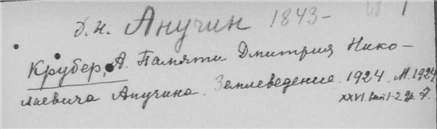 Д. Н. Анучин 1843-
Крубер, А. Памяти Дмитрия Нико-
лаевича Анучина. Землеведение. 1924. М. 1924
XXVI. Вып 1-2.